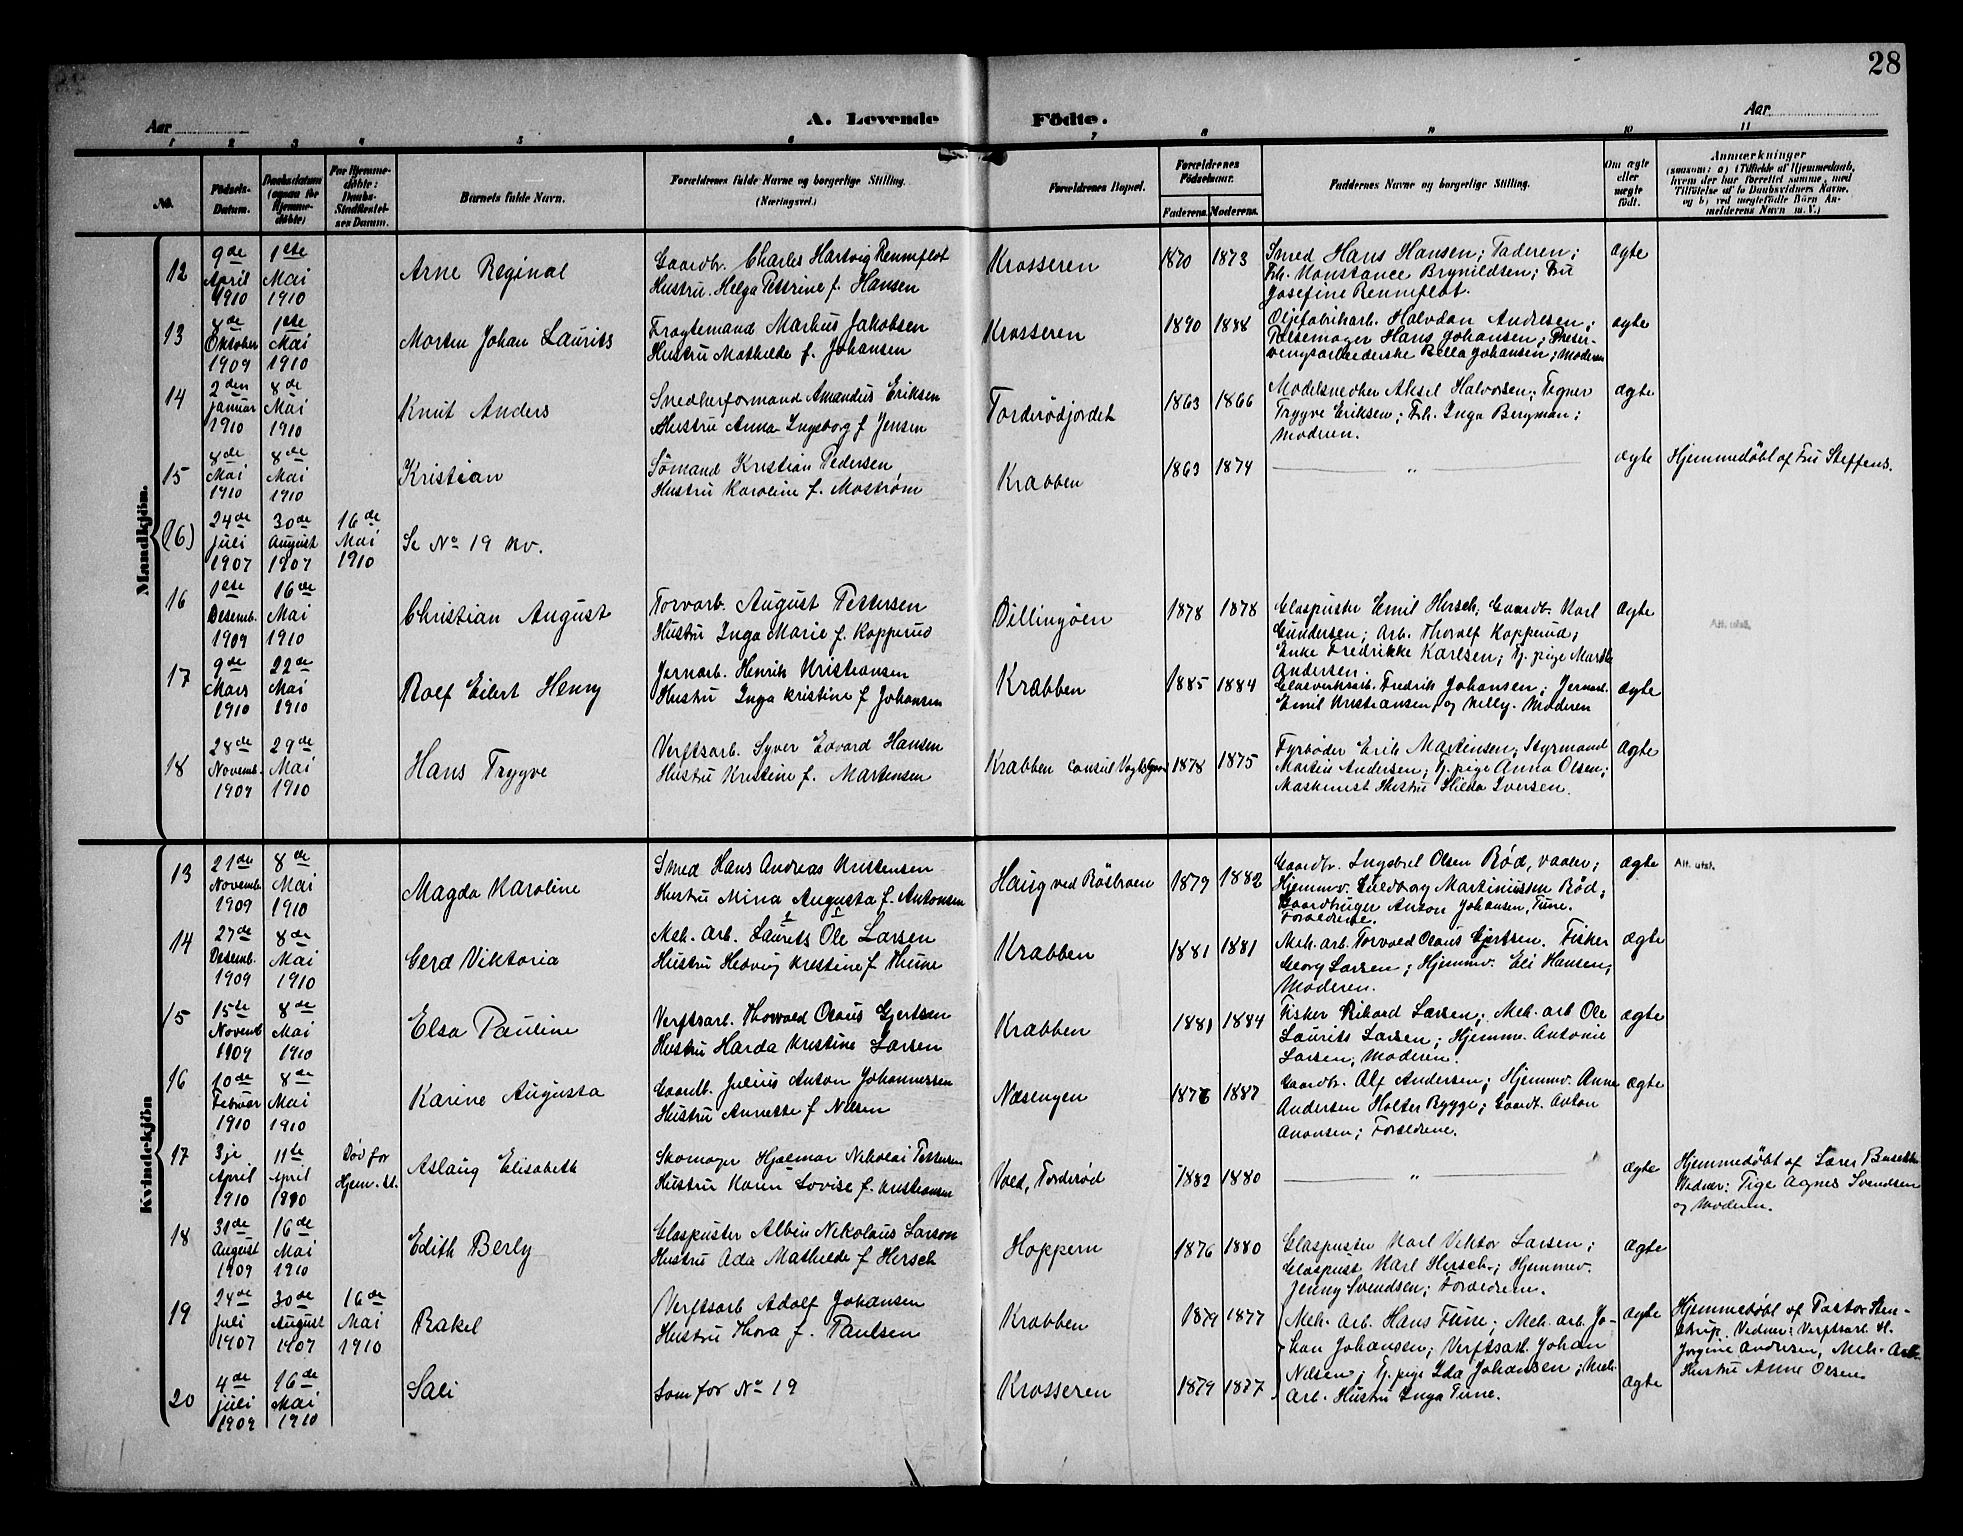 28
Aar
A. Levende
Födte.
Aar
1 2 3 4 5 6 7 8 9 10 11
No.
Födsels-
Datum.
Daabsdatum
(ogsaa for
Hjemme-
døbte)
For Hjemme-
døbte:
Daabs-
Stadfæstel-
ses Datum.
Barnets fulde Navn.
Forældrenes fulde Navne og borgerlige Stilling.
(Næringsvei.)
Forældrenes Bopæl.
Forældrenes
Födselsaar.
Faderens. Moderens.
Faddernes Navne og borgerlige Stilling.
Om ægte
eller
uægte
födt.
Anmærkninger
(saasom: a) i Tilfælde af Hjemmedaab,
hvem der har forrettet samme, med
Tilföielse af to Daabsvidners Navne,
og b) ved uægtefödte Börn An-
melderens Navn m. V.)
Mandkjön.
12
9de
April
1910
1ste
Mai
1910
Arne Reginal
Gaardbr. Charles Hartvig Rennflot
Hustru. Helga Petrine f. Hansen
Krosseren
1870 1873
Smed Hans Hansen; Faderen;
Frk. Konstance Brynildsen; Fru
Josefine Rennfløt.
ægte
13
8de
Oktober
1909
1ste
Mai
1910
Morten Johan Laurits
Fragtemand Markus Jakobsen
Hustru Mathilde f. Johansen
Krosseren
1890 1888
Oljefabrikarb. Halvdan Andresen;
Pølsemager Hans Johansen; Preser-
vengsarbeiderske Bella Johansen; Moderen
ægte
14
2den
Januar
1910
8de
Mai
1910
Knut Anders
Snedkerformand Amandus Eriksen
Hustru Anna Ingeborg f Jensen
Torderödjordet
1863 1866
Modelsnedker Aksel Halvorsen; Tegner
Trygve Eriksen; Frk. Inga Bergman;
Moderen.
ægte
15
8de
Mai
1910
8de
Mai
1910
Kristian
Sömand Kristian Pedersen
Hustru Karoline f. Moström
Krabben
1863 1874
"
ægte
Hjemmedøbt af Fru Steffens.
(16)
24de
Juli
1907
30de
August
1907
16de
Mai
1910
Se No 19 kv.
16
1ste
Desemb.
1909
16de
Mai
1910
Christian August
Torvarb. August Pettersen
Hustru Inga Marie f. Kopperud
Dillingöen
1878 1878
Glaspuster Emil Hersch; Gaardb. Karl
Gundersen; Arb. Thoralf Kopperud;
Enke Fredrikke Karlsen; Tj. pige Martha
Andersen.
ægte
Att. utst.
17
9de
Mars
1910
22de
Mai
1910
Rolf Eilert Henry
Jernarb. Henrik Kristiansen
Hustru Inga Kristine f Johansen
Krabben
1885 1884
Glasverksarb. Fredrik Johansen; Jernarb.
Emil Kristiansen og Nelly. Moderen
ægte
18
28de
Novemb.
1909
29de
Mai
1910
Hans Trygve
Verftsarb. Syver Edvard Hansen
Hustru Kristine f. Martensen
Krabben Consul Vogts
1878 1875
Fyrbøder Erik Martinsen; Styrmand
Martin Andersen; Tj. pige Anna Olsen;
Maskinist Hustru Hilda Iversen.
Ægte
Kvindekjön
13
21de
Novemb.
1909
8de
Mai
1910
Magda Karoline
Smed Hans Andreas Kristensen
Hustru Mina Augusta f. Antonsen
Haug ved Röstroen
1879 1882
Gaardbr. Ingebret Olsen Rød, Vaaler;
Hjemmv. Martinussen Rød;
Gaardbruger Anton Johansen, Tune.
Forældrene.
ægte
Att. utst.
14
27de
Desemb.
1909
8de
Mai
1910
Gerd Viktoria
Mek. Arb. Laurits Ole Larsen
Hustru Hedvig Kristine f Thune
Krabben
1881 1881
Mek. arb. Torvald Osaus Gjertsen. Fisker
Georg Larsen; Hjemmv. Eli Hansen;
Moderen.
Ægte
15
15de
Novemb
1909
8de
Mai
1910
Elsa Pauline
Verftsarb. Thorvald Osaus Gjertsen
Hustru Harda Kristine Larsen
Krabben
1881 1884
Fisker Rikard Larsen; Mek. arb Ole
Laurits Larsen; Hjemmv. Antonie
Larsen; Moderen.
ægte
16
10de
Februar
1910
8de
Mai
1910
Karine Augusta
Gaardb. Julius Anton Johannessen
Hustru Annette f Nilsen
Næsengen
1876 1887
Gaardbr. Alf Andersen; Hjemmv. Anna
Andersen Holter Rygge; Gaardb. Anton
Anonsen; Forældrene.
Ægte
17
3je
April
1910
11te
April
1890
Død før
Hjem. st.
Aslaug Elisabeth
Skomager Hjalmar Nikolai Pettersen
Hustru Karen Lovise f. Kristiansen
Vold, Torderöd
1882 1880
"
Ægte
Hjemmedøbt af Lærer
Vidner: Pige Agnes Svendsen
og Moderen.
18
31de
August
1909
16de
Mai
1910
Edith Berly
Glaspuster Albin Nikolaus Larson
Hustru Ada Mathilde f Hersch
Hoppern
1876 1880
Glaspuster Karl Viktor Larsen;
Glaspust Karl Hersch; Hjemmev.
Jenny Svendsen; Forældrene.
Ægte
19
24de
Juli
1907
30de
August
1907
16de
Mai
1910
Rakel
Verftsarb Adolf Johansen
Hustru Thora f. Paulsen
Krabben
1879 1877
Mek. Arb. Hans Tune; Mek. arb. Jo-
han Johansen; Verftsarb. Johan
Nilsen; Tj. pige Ida Johansen; Mek.
Arb. Hustru Inga Tune.
Ægte
Hjemmedøbt af Pastor Sten-
strup. Vidner: Verftsarb. H.
Jorgine Andersen, Mek. Arb.
Hustru Anne Olsen
20
4de
Juli
1909
16de
Mai
1910
Sali
Som for No 19
Krosseren
1879 1877
Ægte